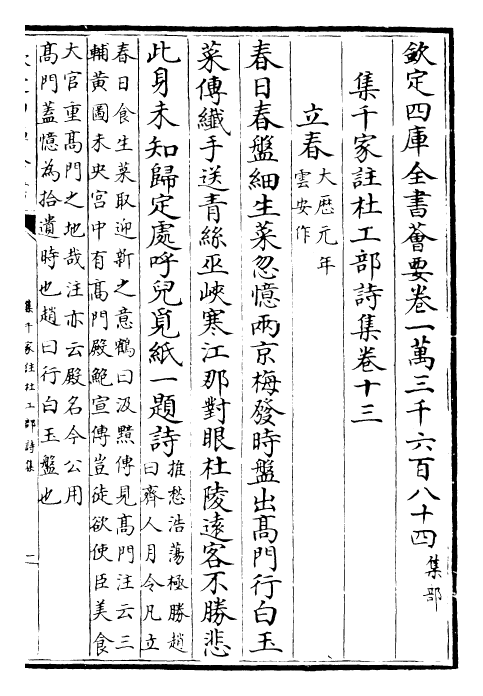 欽定四庫全書薈要卷一萬三千六百八十四 集部
集千家註杜工部詩集卷十三
立春 大厯元年
雲安作
春日春盤細生菜忽憶兩京梅發時盤出髙門行白玉
菜傳纖手送青絲巫峽寒江那對眼杜陵逺客不勝悲
此身未知歸定處呼兒覓紙一題詩 推愁浩蕩極勝趙
曰齊人月令凡立
春日食生菜取迎新之意鶴曰汲黯傳見髙門注云三
輔黄圖未央宫中有髙門殿鮑宣傳豈徒欲使臣美食
大官重髙門之地哉注亦云殿名今公用
髙門蓋憶為拾遺時也趙曰行白玉盤也
集千家註杜工部詩集
一